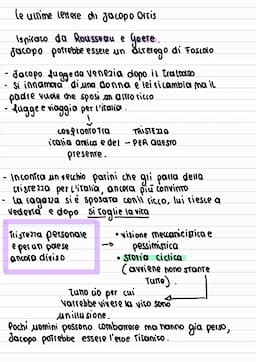 le ultime lettere di Jacopo Ortis
Ispirato da Rousseau e Goere.
Jacopo potrebbe essere un alterego di Foscolo
- Jacopo fugge da Venezia dopo il Trattato
- Si innamora di una donna e lei ricambia ma il
padre vuole che sposi un altro ricco
- Fugge e viaggia per l'italia.
italia antica e del - PER questo
presente.
- Incontra un vecchio parini che gli parla della
tristezza per l'italia, ancora più convinto
- La ragazza si è sposata con il ricco, lui riesce a
vederla e dopo si toglie la vita
Tristezza personale
e per un paese
ancora diviso
→ • visione meccanicistica e
pessimistica
• storia ciclica
(avviene nonostante
Tutto)
Tutto ciò per cui
varrebbe vivere la vita sono
un illusione.
Pochi uomini possono combattere ma hanno già perso,
Jacopo potrebbe essere l'eroe Titanico.